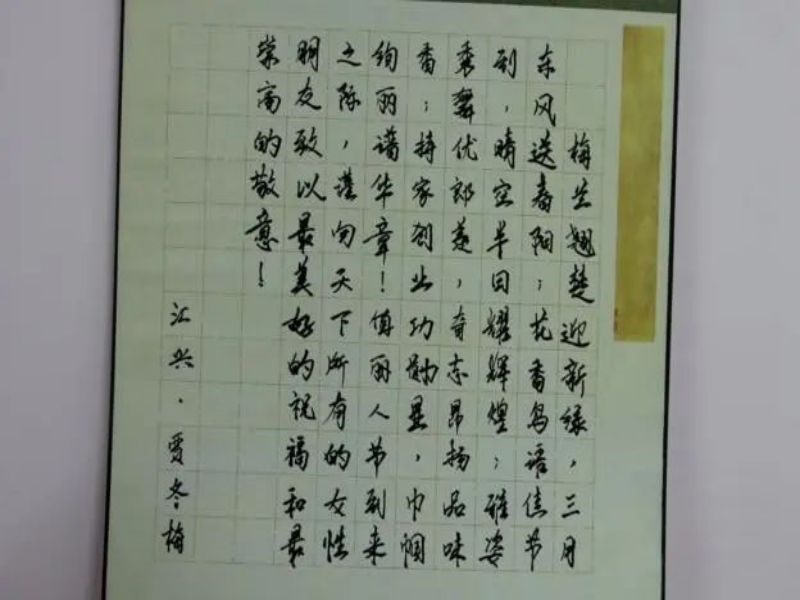 梅生翘楚迎新缘，三月
东风送春阳；花香鸟语佳节
到，晴空羊回耀辉煌；雅姿
舞优郎，奇志昂扬品味
香；持家创业功勋显，巾帼
绚丽谱华章！值丽人节到来
之际，谨向天下所有的女性
朋友致以最美好的祝福和最
崇高的敬意！
汇兴·贾冬梅